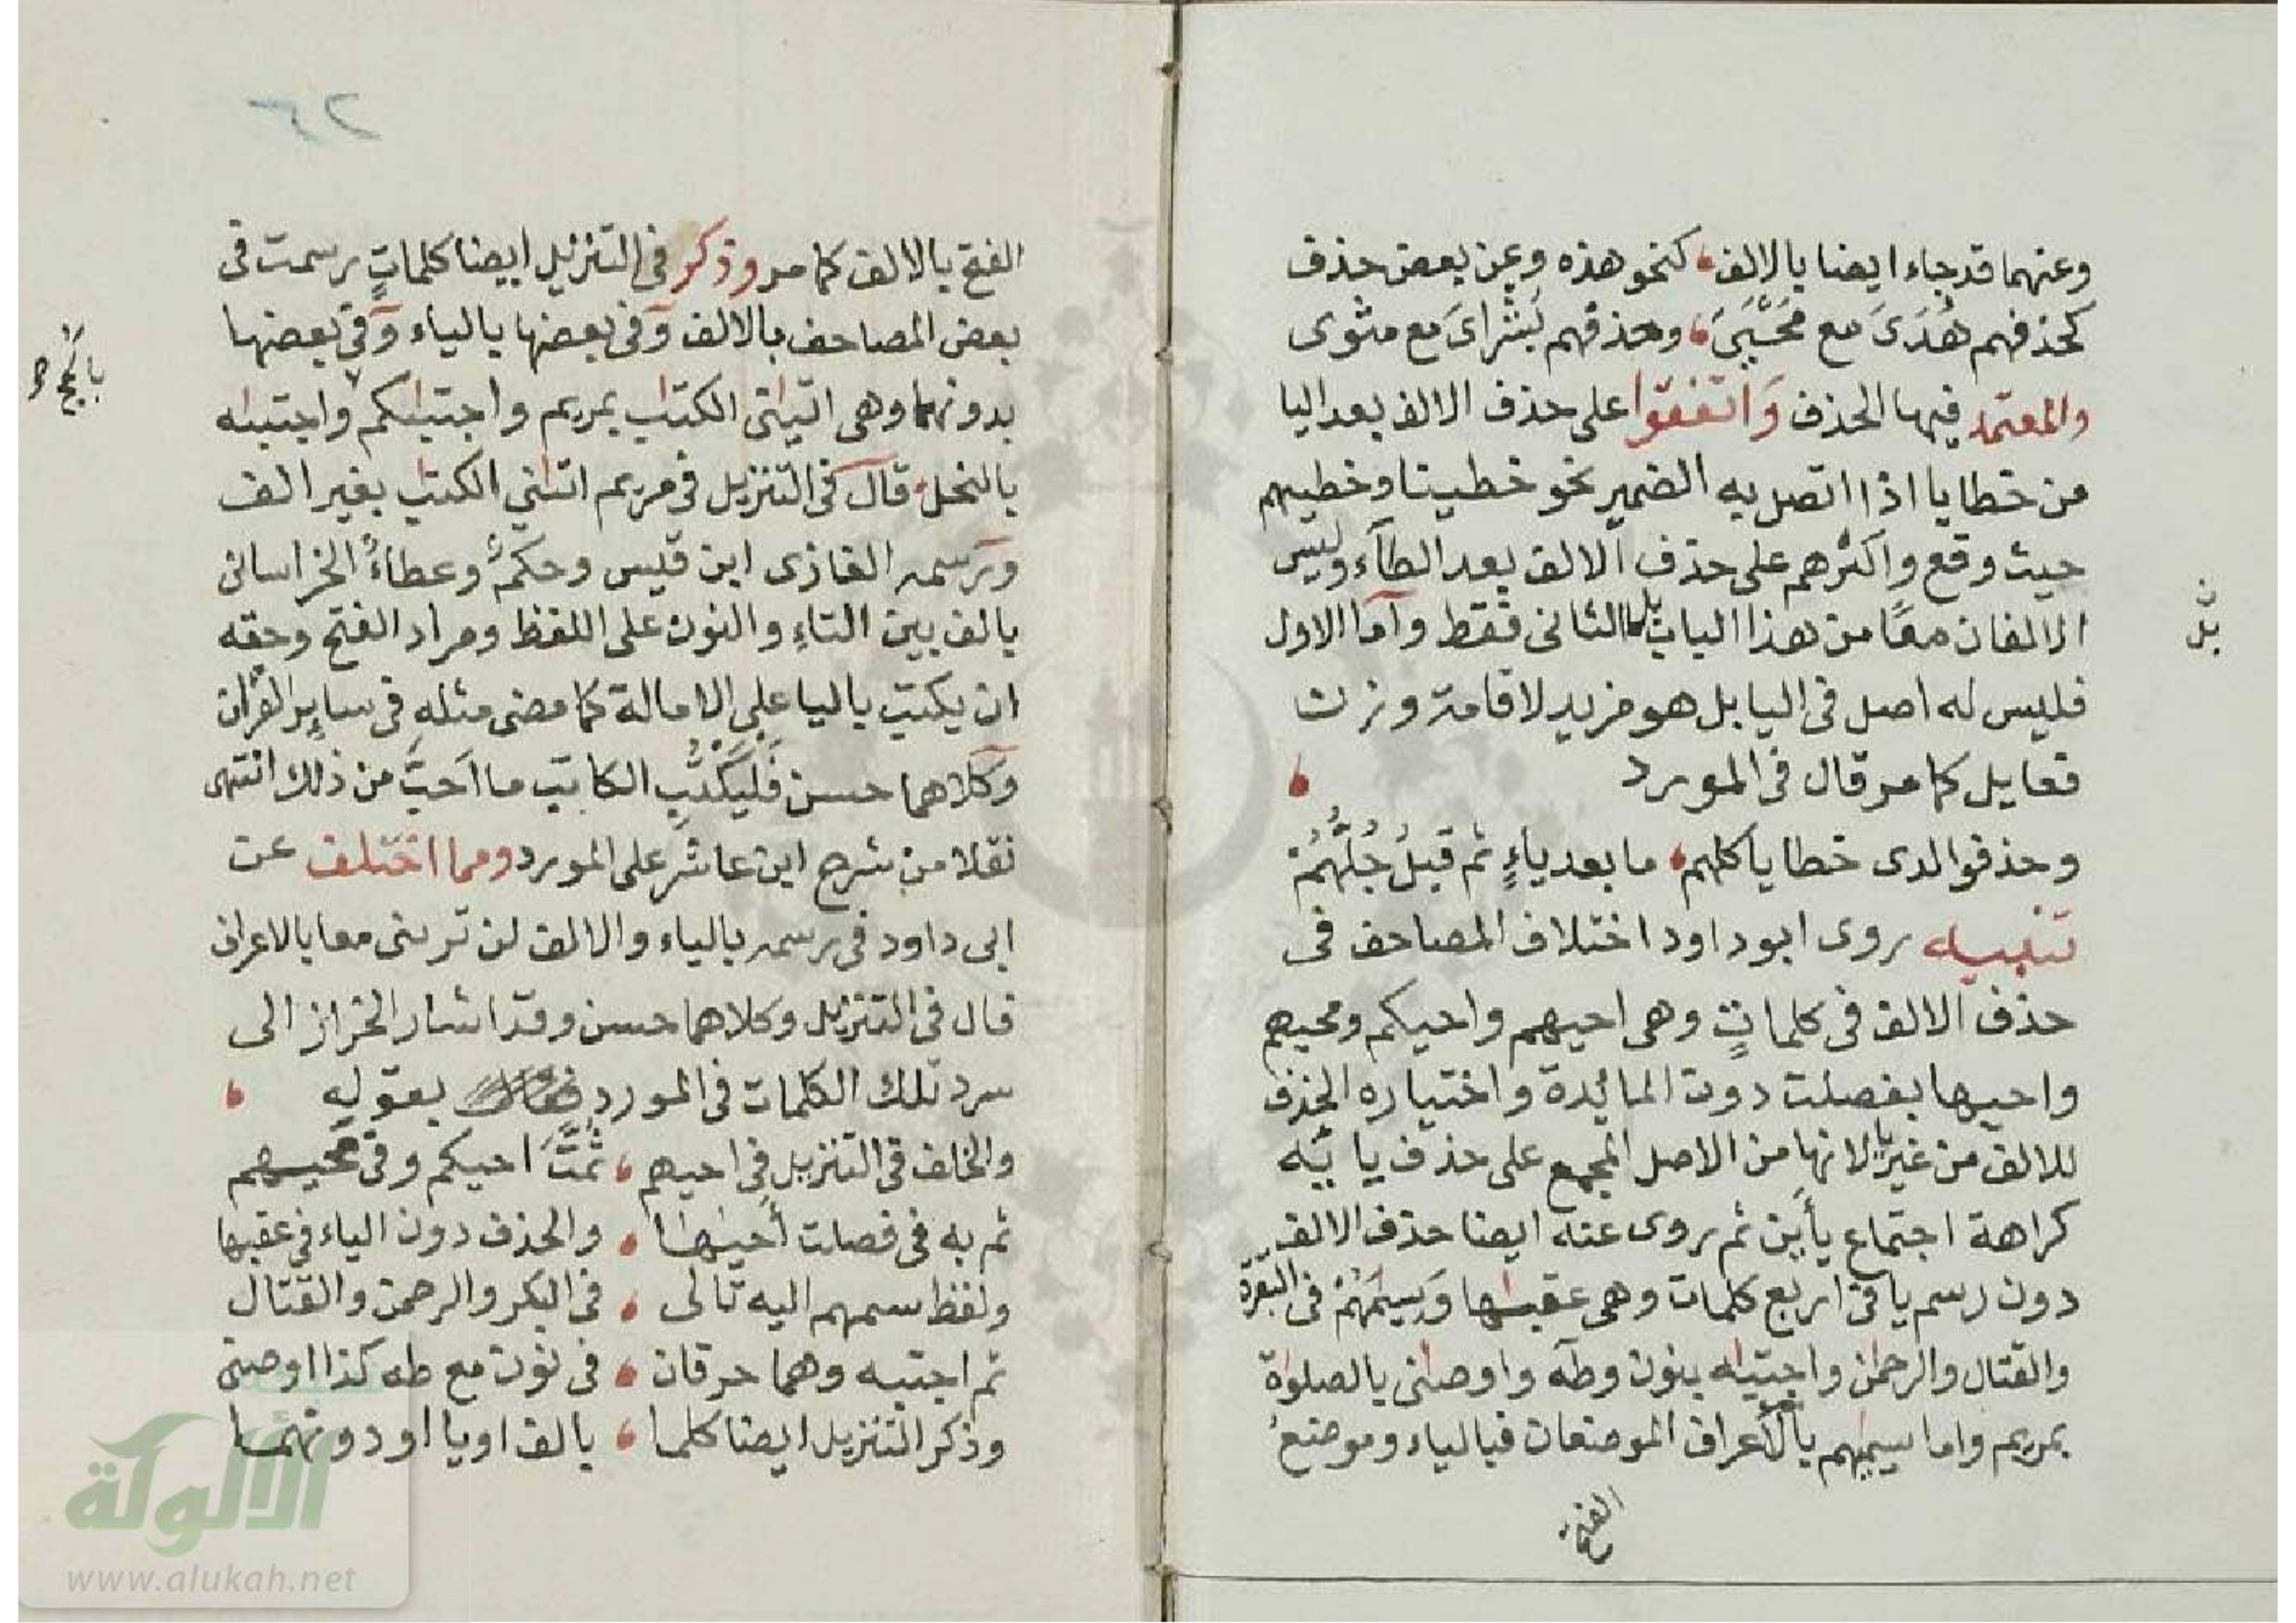 وعنهما قد جاء ايضا بالالف، كنحو هذه وعن بعض حذف
كحذفهم هُدَىَ مع مَحْيَىَ، وحذفهم بُشْراىَ مع مثوى
والمعتمد فيها الحذف وَاتفقوا على حذف الالف بعد اليا
من خطايا اذا اتصل به الضمير نحو خطيينا وخطيهم
حيث وقع واكثرهم على حذف الالف بعد الطآء وليس
الالفان معًا من هذا الباب بل الثانى فقط وآما الاول
بل
فليس له اصل فى اليا بل هو مزيد لاقامة وزن
فعايل كما مر قال فى المورد ،
وحذفوا لدى خطايا كلهم، ما بعد ياءٍ ثم قبلُ جُلُّهُمْ
تنبيه روى ابو داود اختلاف المصاحف فى
حذف الالف فى كلماتٍ وهى احيهم واحيكم ومحيهم
واحيها بفصلت دون المائدة واختياره الحذف
للالف من غير يا لانها من الاصل المجمع على حذف يائه
كراهة اجتماع يأين ثم روى عنه ايضا حذف الالف
دون رسم يا فى اربع كلمات وهى عقبٰها وَسِيمَهُمْ فى البقرة
والقتال والرحمٰن واجتبٰه بنون وطه واوصٰنى بالصلوٰة
بمريم واما سيمٰهم بالاعراف الموضعان فبالياء وموضعُ
الفتح
٦٢
الفتح بالالف كما مر وذكر فى التنزيل ايضا كلماتٍ رسمت فى
بعض المصاحف بالالف وفى بعضها بالياء وفى بعضها
بدونهما وهى اتٰنى الكتٰب بمريم واجتبٰكم واجتبٰه
بالنحل، قال فى التنزيل فى مريم اتٰنى الكتٰب بغير الف
ورسمه الغازى ابن قيس وحكمٌ وعطاءٌ الخراسانى
بالف بين التاءِ والنون على اللفظ ومراد الفتح وحقه
ان يكتب باليا على الامالة كما مضى مثله فى ساير القرٰان
وكلاهما حسن فَلْيَكْتُبِ الكاتب ما اَحبَّ من ذلك انتهى
نقلا من شرح ابن عاشر على المورد ومما اختلف عن
ابى داود فى رسمه بالياء والالف لن ترىنى معا بالاعراف
قال فى التنزيل وكلاهما حسن وقد اشار الخراز الى
سرد تلك الكلمات فى المورد بقوله ،
والخلف فى التنزيل فى احيهم ، ثُمَّتَ احيكم وفى محيهم
ثم به فى فصلت أحيٰها ، والحذف دون الياء فى عقبها
ولفظ سيمهم اليه تالى ، فى البكر والرحمن والقتال
ثم اجتبيه وهما حرفان ، فى نون مع طه كذا اوصنى
وذكر التنزيل ايضا كلما ، بالف او يا او دونهما
الألوكة
www.alukah.net